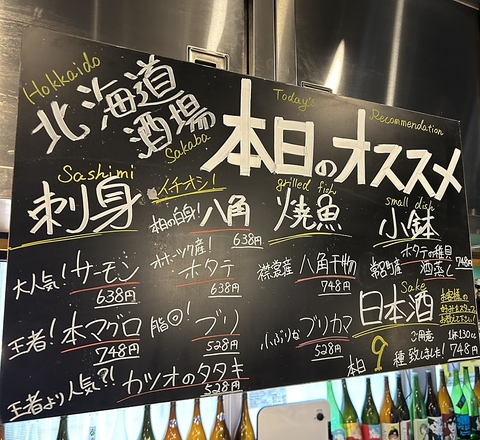 Hokkaido
北海道
酒場
Sakaba
Today's Recommendation
本日のオススメ
Sashimi
刺身
イチオシ!
大人気!サーモン
638円
王者!本マグロ
748円
王者より人気?!カツオのタタキ
528円
白身!八角
638円
オホーツク産!
ホタテ
638円
脂◎!ブリ
528円
grilled fish
焼魚
産 八角干物
748円
小ぶりなブリカマ
528円
small dish
小鉢
ホタテの稚貝
酒蒸し 748円
Sake
日本酒
お客様の
ご用意 1杯130cc
本日9種致しました!748円